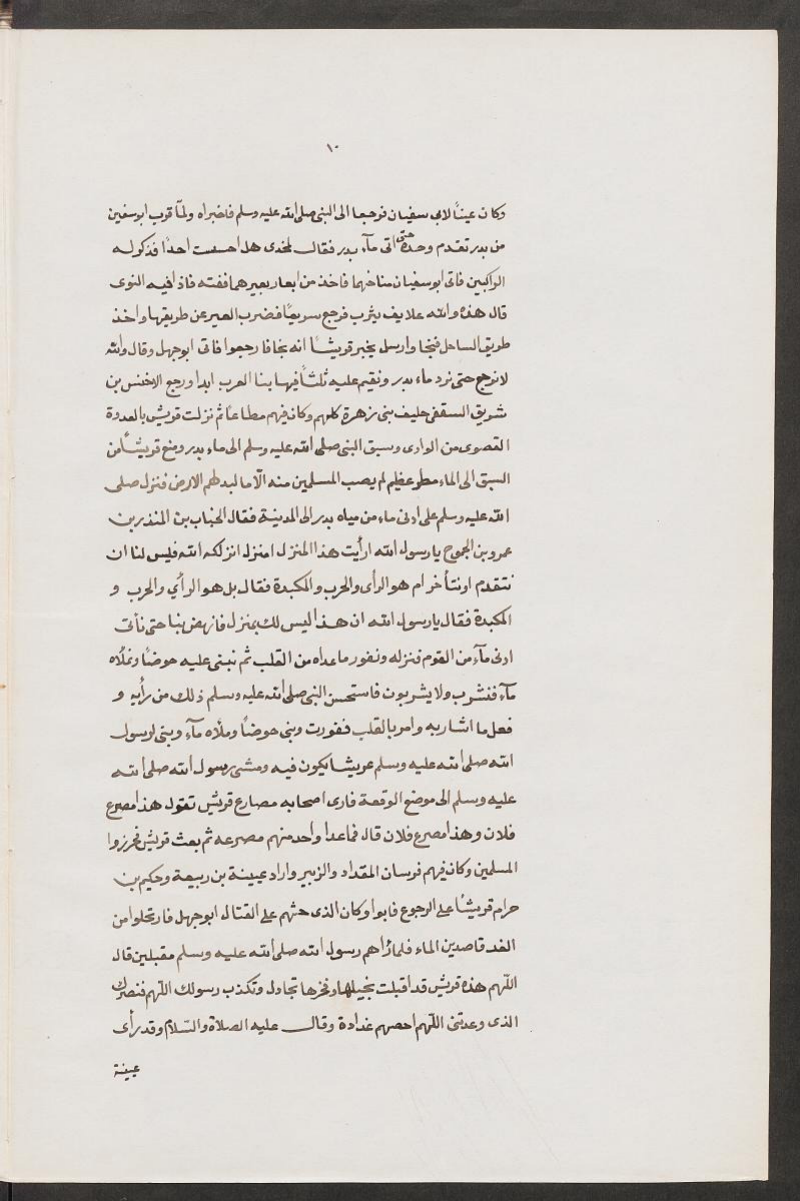 ١٠
وكان عيناً لابي سفيان فرجعا الى النبى صلى الله عليه وسلم فاخبراه ولمّا قرب ابو سفين
من بدر تقدم وحده حتى اتى مآء بدر فقال لمجدى هل احسست احداً فذكر له
الراكبين فاتى ابو سفيان مناخهما فاخذ من ابعار بعيرهما ففته فاذا فيه النوى
قال هذه والله علايف يثرب فرجع سريعاً فضرب العير عن طريقها واخذ
طريق الساحل فنجا وارسل يخبر قريشاً انه نجا فارجعوا فاتى ابوجهل وقال والله
لانرجع حتى نرد ماء بدر ونقيم عليه ثلثاً فيهابنا العرب ابدا ورجع الاخنس بن
شريق السقفى حليف بنى زهرة كلهم وكان فيهم مطاعاً ثم نزلت قريش بالعدوة
القصوى من الوادى وسبق النبى صلى الله عليه وسلم الى ماء بدر ومنع قريشاً من
السبق الى الماء مطر عظيم لم يصب المسلمين منه الّا ما لبد لهم الارض فنزل صلى
الله عليه وسلم على ادنى ماء من مياه بدر الى المدينة فقال الحباب بن المنذر بن
عمرو بن الجموح يارسول الله ارأيت هذا المنزل امنزل انزلكه الله فليس لنا ان
نتقدم او نتأخر ام هو الرأى والحرب والمكيدة فقال بل هو الرأي والحرب و
المكيدة فقال يارسول الله ان هذا ليس لك بمنزل فانهض بنا حتى نأتى
ادنى مآء من القوم فننزله ونغور ماعداه من القلب ثم نبنى عليه حوضاً ونملأه
مآء فنشرب ولا يشربون فاستحسن النبى صلى الله عليه وسلم ذلك من رأيه و
فعل ما اشار به وامر بالقلب فغورت وبنى حوضاً وملأه مآء وبنى لرسول
الله صلى الله عليه وسلم عريشا يكون فيه ومشى رسول الله صلى الله
عليه وسلم الى موضع الوقعة فارى اصحابه مصارع قريش تقول هذا مصرع
فلان وهذا مصرع فلان قال فماعدا واحد منهم مصرعه ثم بعث قريش فحرزوا
المسلمين وكان فيهم فرسان المقداد والزبير واراد عيينة بن ربيعة وحكيم بن
حرام قريشاً على الرجوع فابوا وكان الذى حثهم على القتال ابوجهل فارتحلوا من
الغد قاصدين الماء فلما رٰاهم رسول الله صلى الله عليه وسلم مقبلين قال
اللهم هذه قريش قد اقبلت بخيلها وفخرها تجادل وتكذب رسولك اللهم فنصرك
الذى وعدتنى اللهم احصهم غدادة وقال عليه الصلاة والسّلام وقد رأى
عيينة